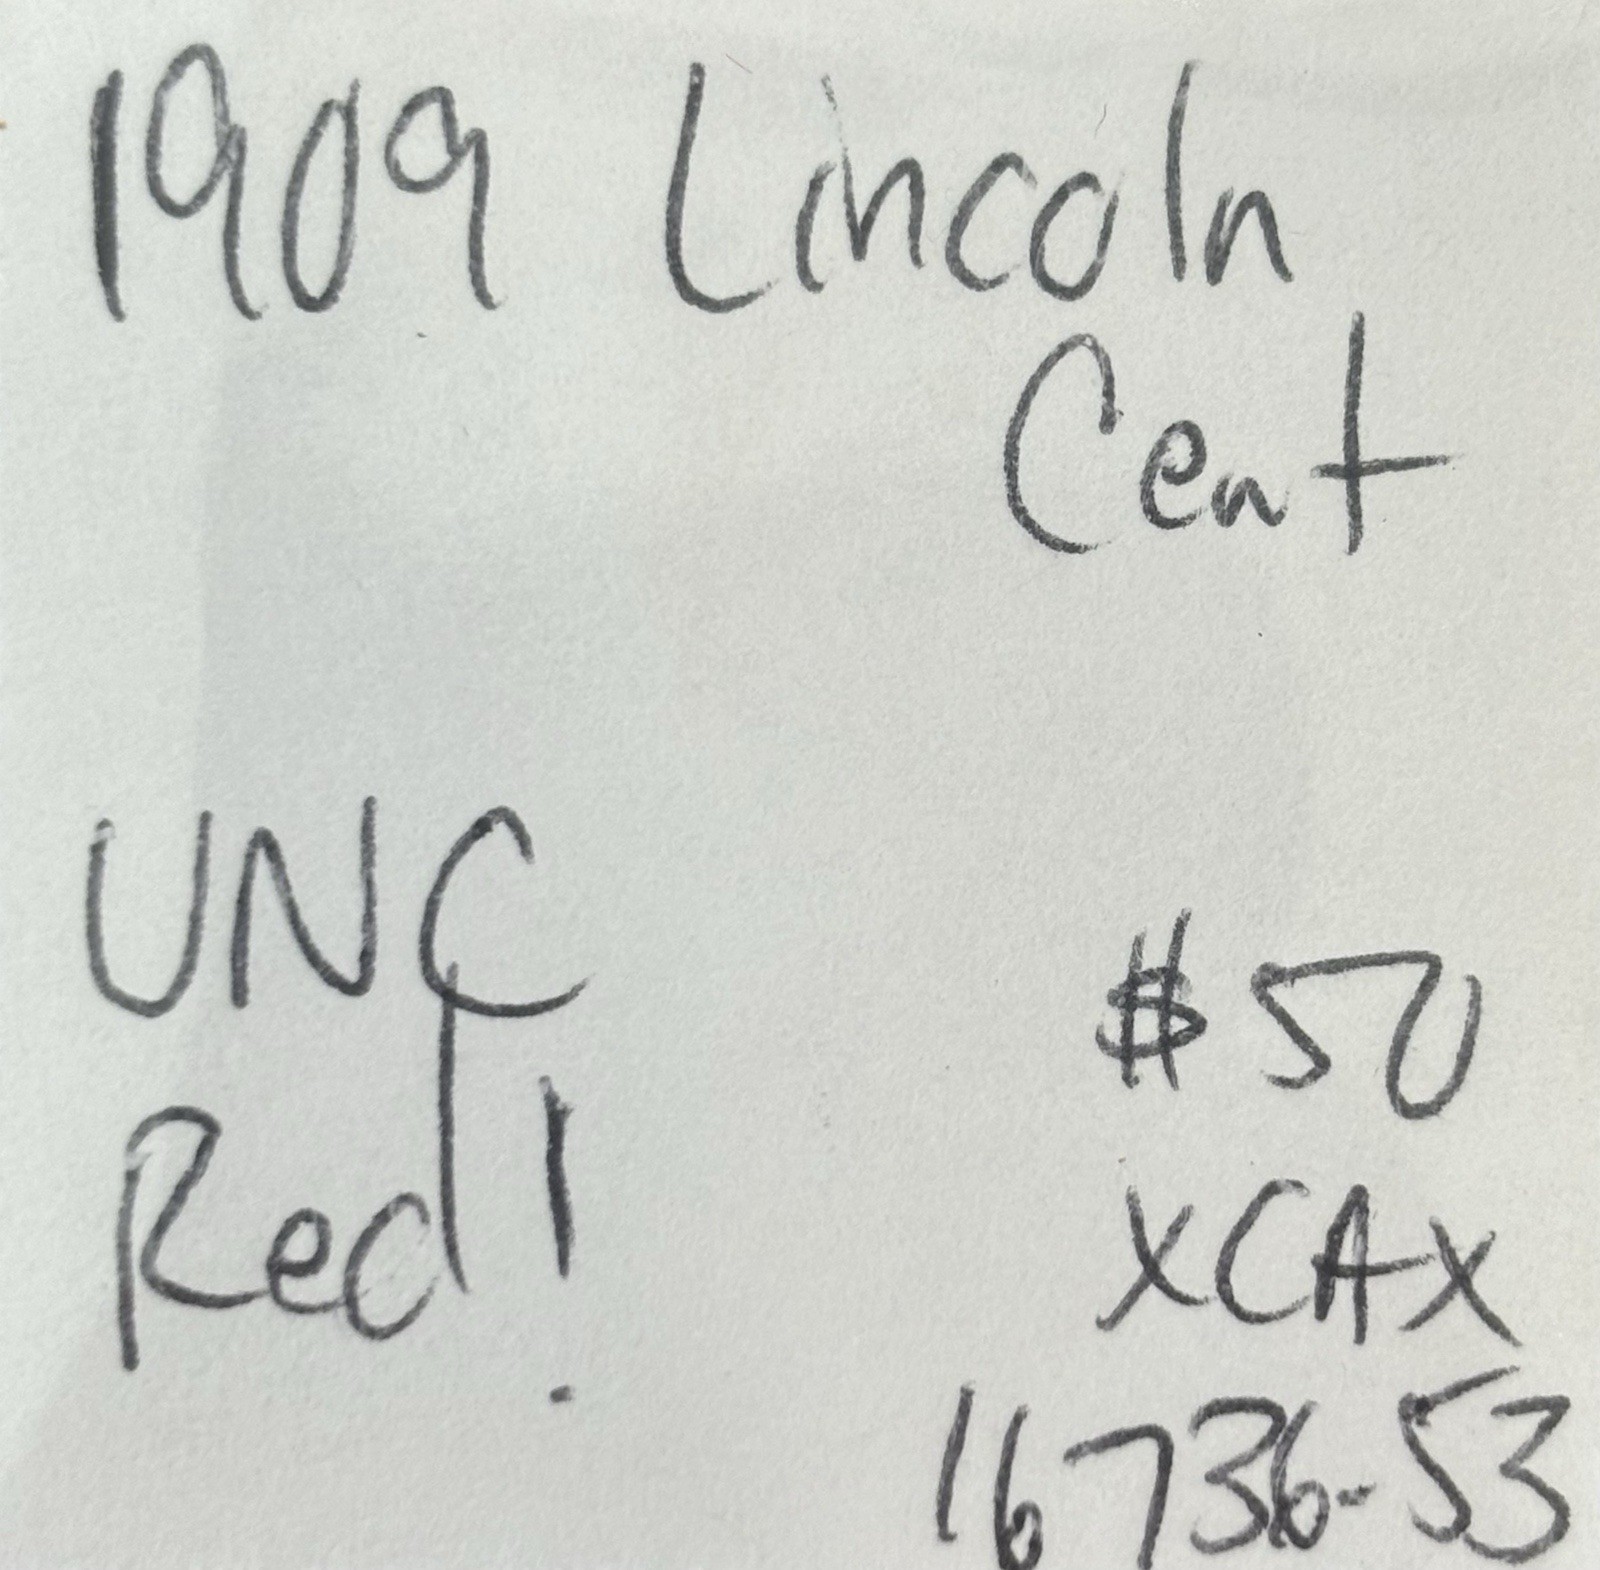 1909 Lincoln
Cent
UNC
Red!
$50
XCAX
16736-53